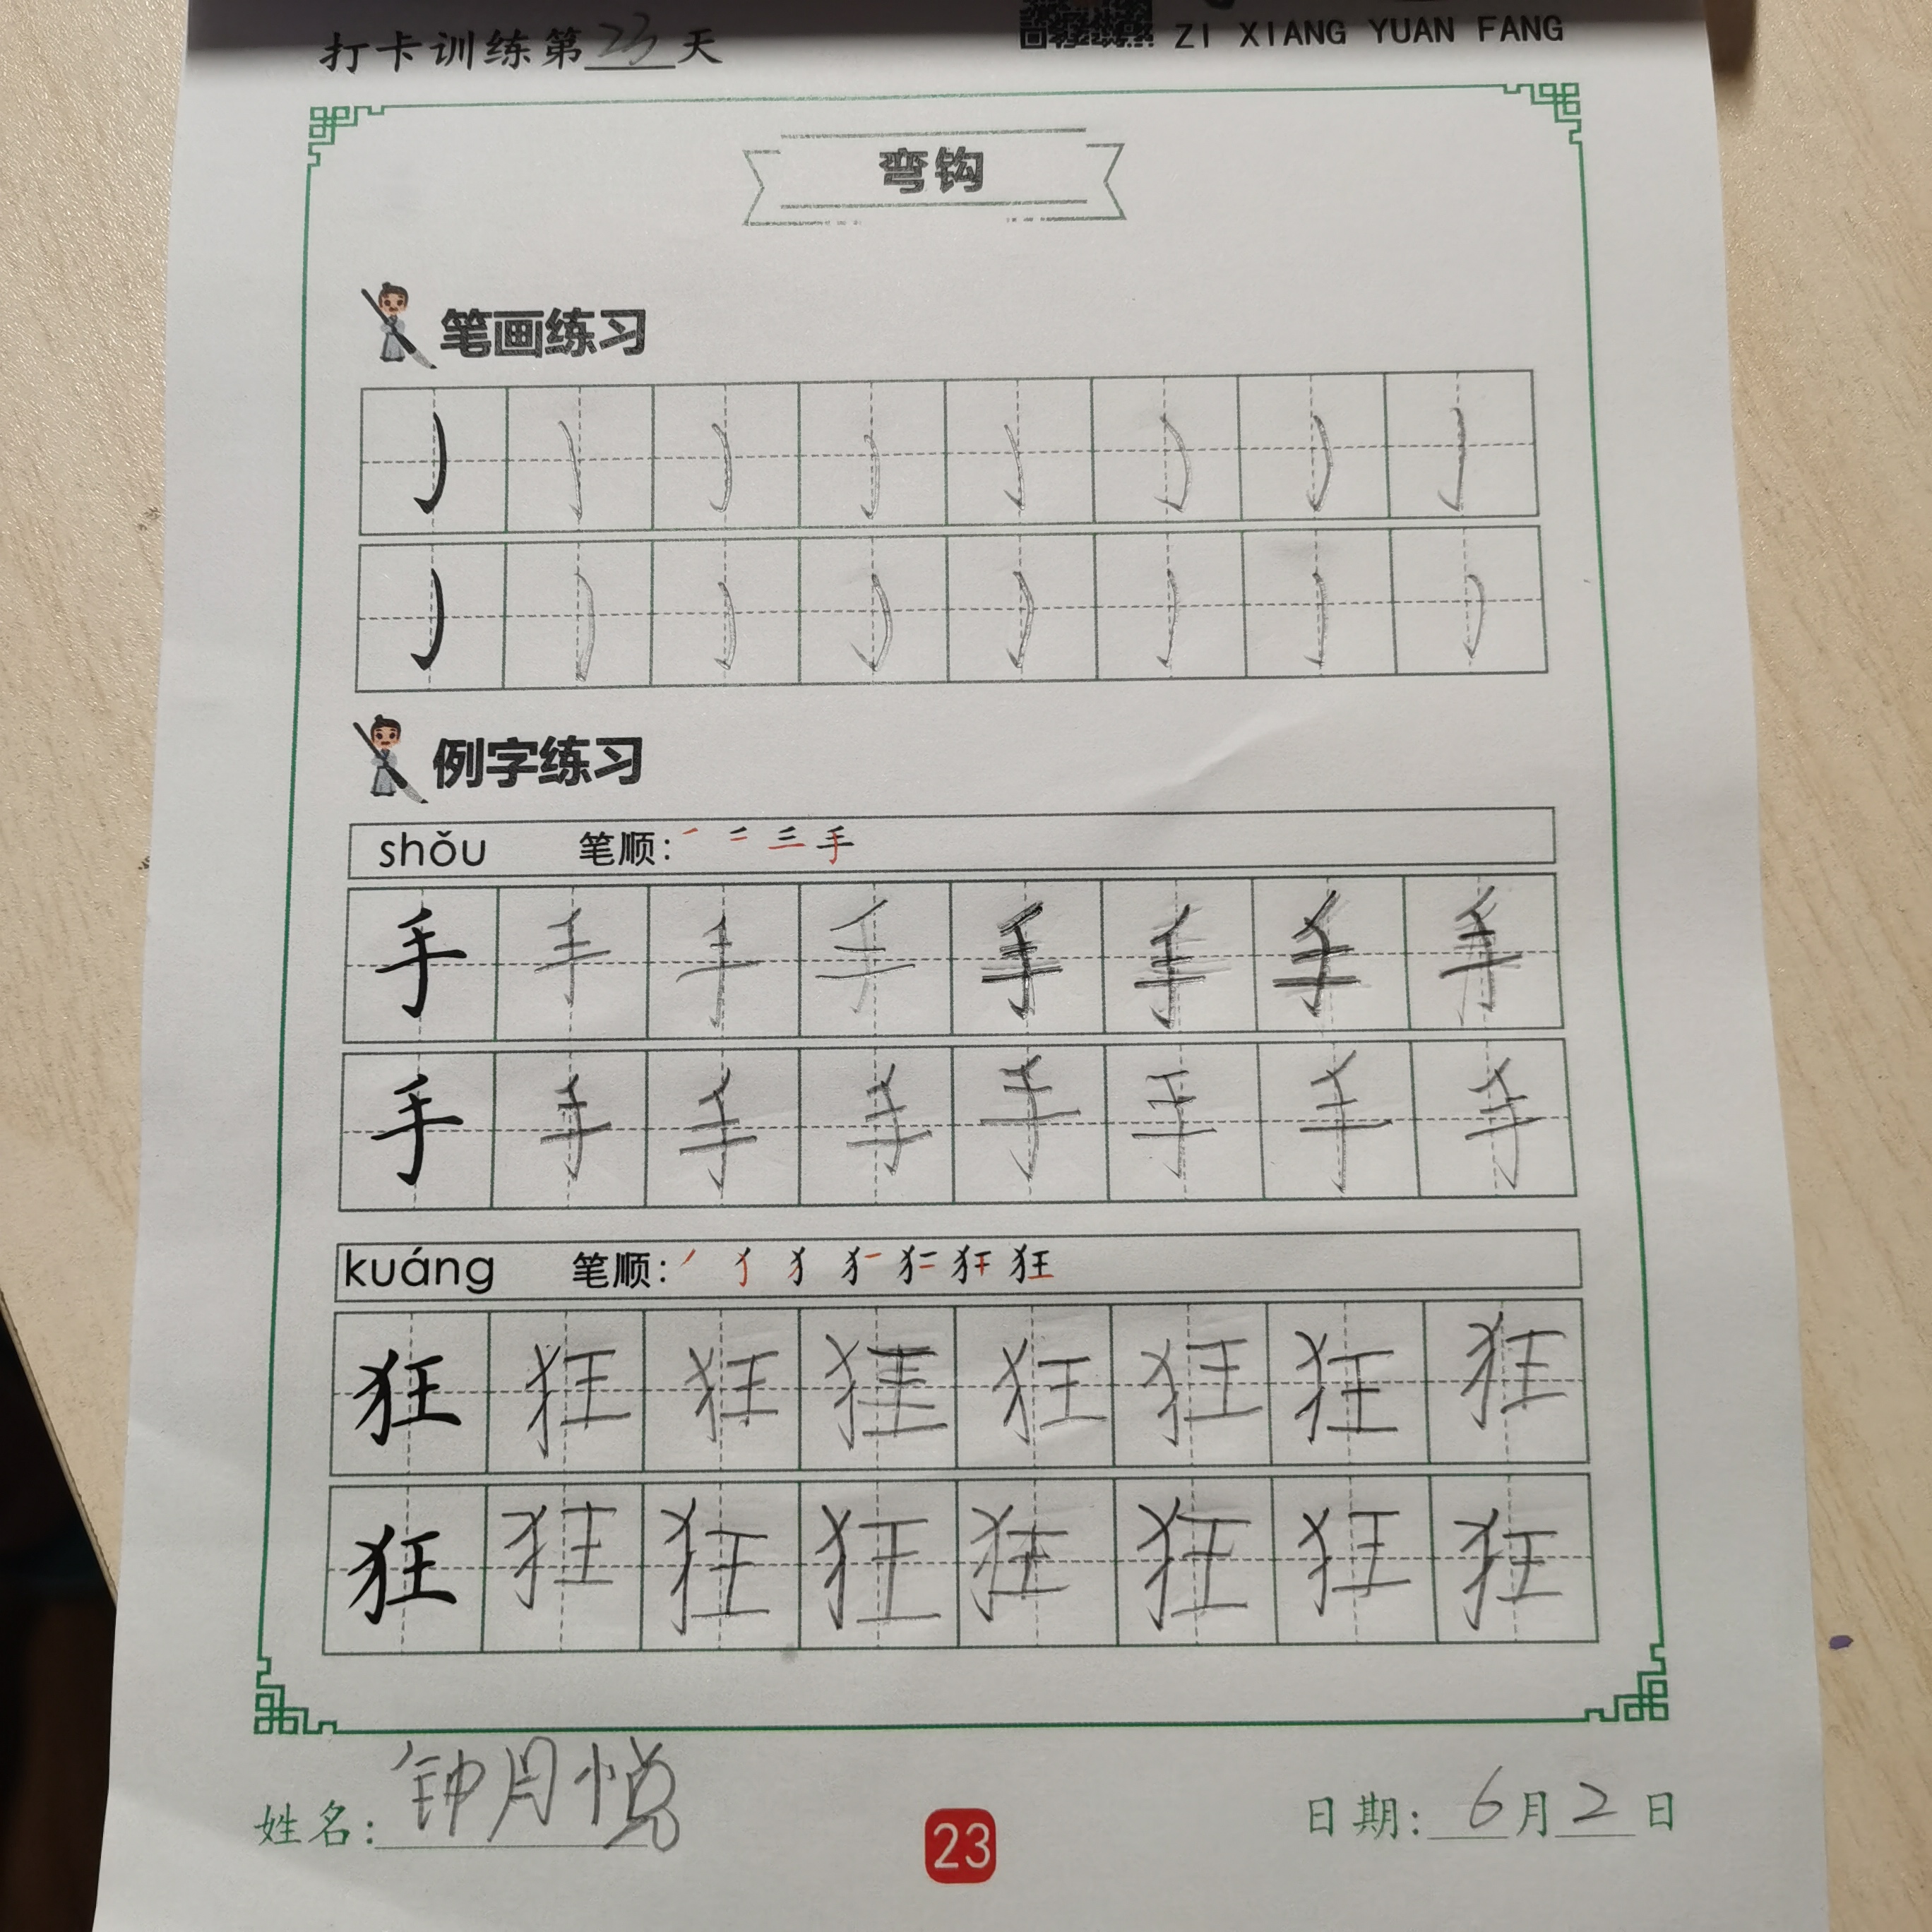 打卡训练第23天
ZI XIANG YUAN FANG
弯钩
笔画练习
例字练习
shǒu 笔顺: 手
手 手 手 手 手 手 手 手
手 手 手 手 手 手 手 手
kuáng 笔顺: 狂
狂 狂 狂 狂 狂 狂 狂 狂
狂 狂 狂 狂 狂 狂 狂 狂
姓名: 钟月悦
23
日期: 6月2日